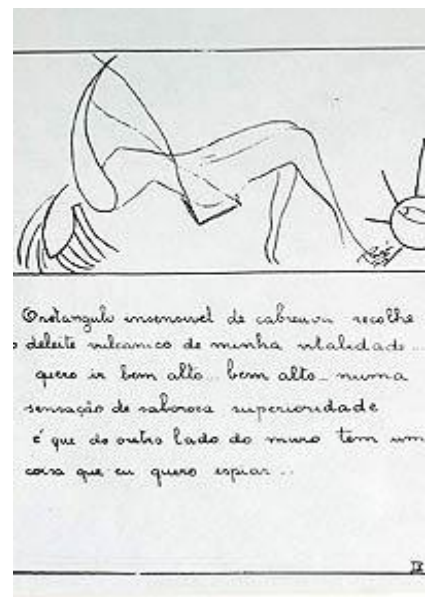 O retangulo insensivel de cabreuva recolhe
o deleite vulcanico de minha vitalidade...
quero ir bem alto... bem alto... numa
sensação de saborosa superioridade
é que do outro lado do muro tem um
coisa que eu quero espiar...
IX